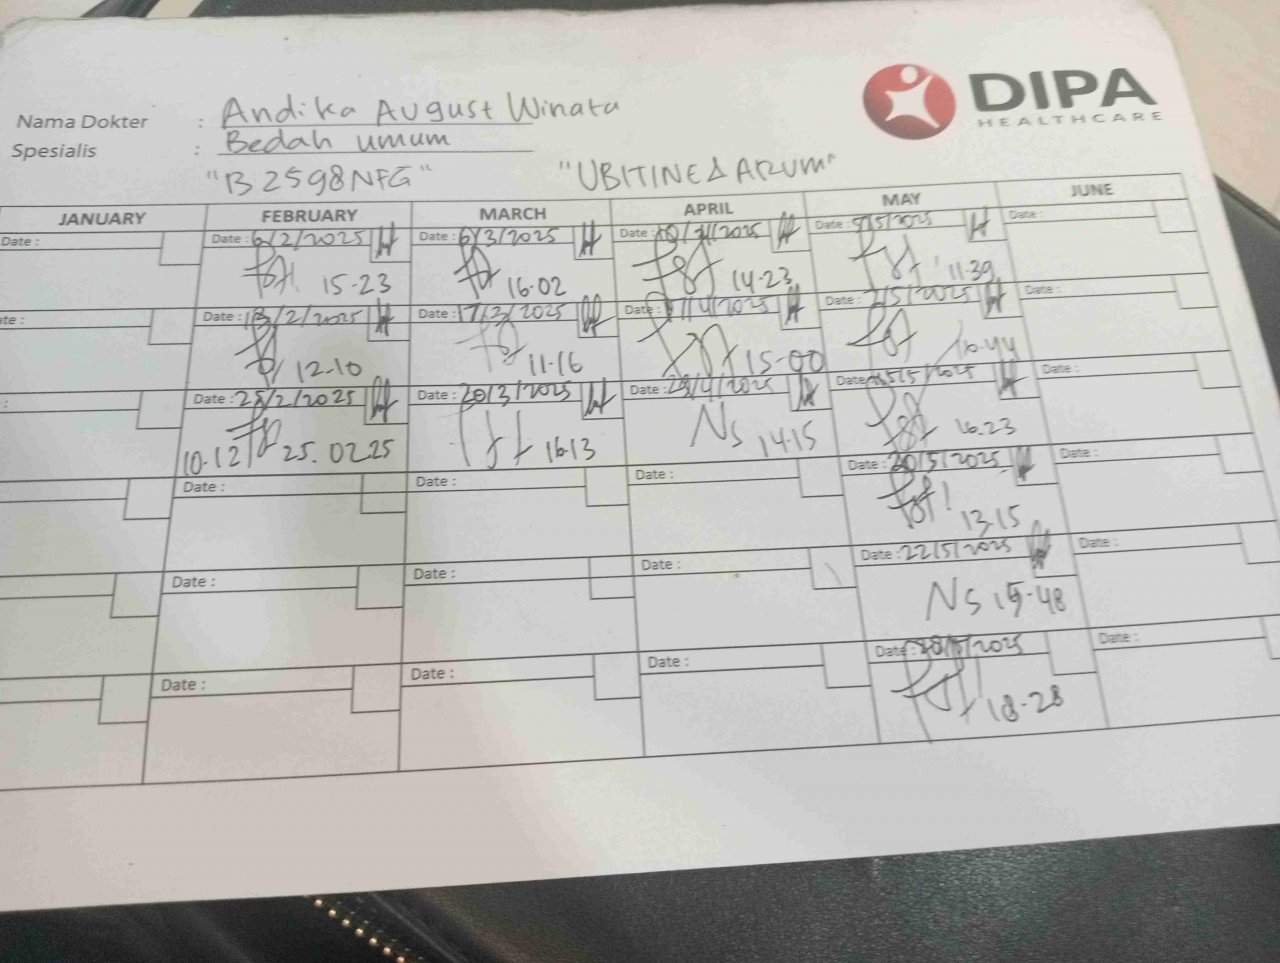 DIPA
HEALTHCARE
Nama Dokter : Andika August Winata
Spesialis : Bedah umum
"B 2598 NFG" "UBITINE & ARUM"
JANUARY FEBRUARY MARCH APRIL MAY JUNE
Date : Date : 6/2/2025 Date : 6/3/2025 Date : /2025 Date : 5/5/2025 Date :
15-23 16.02 14-23 11.39
te : Date : 13/2/2025 Date : 17/3/2025 Date : /4/2025 Date : /5/2025 Date :
12-10 11-16 15-00 16.44
: Date : 25/2/2025 Date : 20/3/2025 Date : /4/2025 Date : 15/5/2025 Date :
10.12 25.02.25 16.13 Ns 14.15 16.23
Date : Date : Date : Date : 20/5/2025 Date :
13.15
Date : Date : Date : Date : 22/5/2025 Date :
Ns 15-48
Date : Date : Date : Date : /2025 Date :
18-28